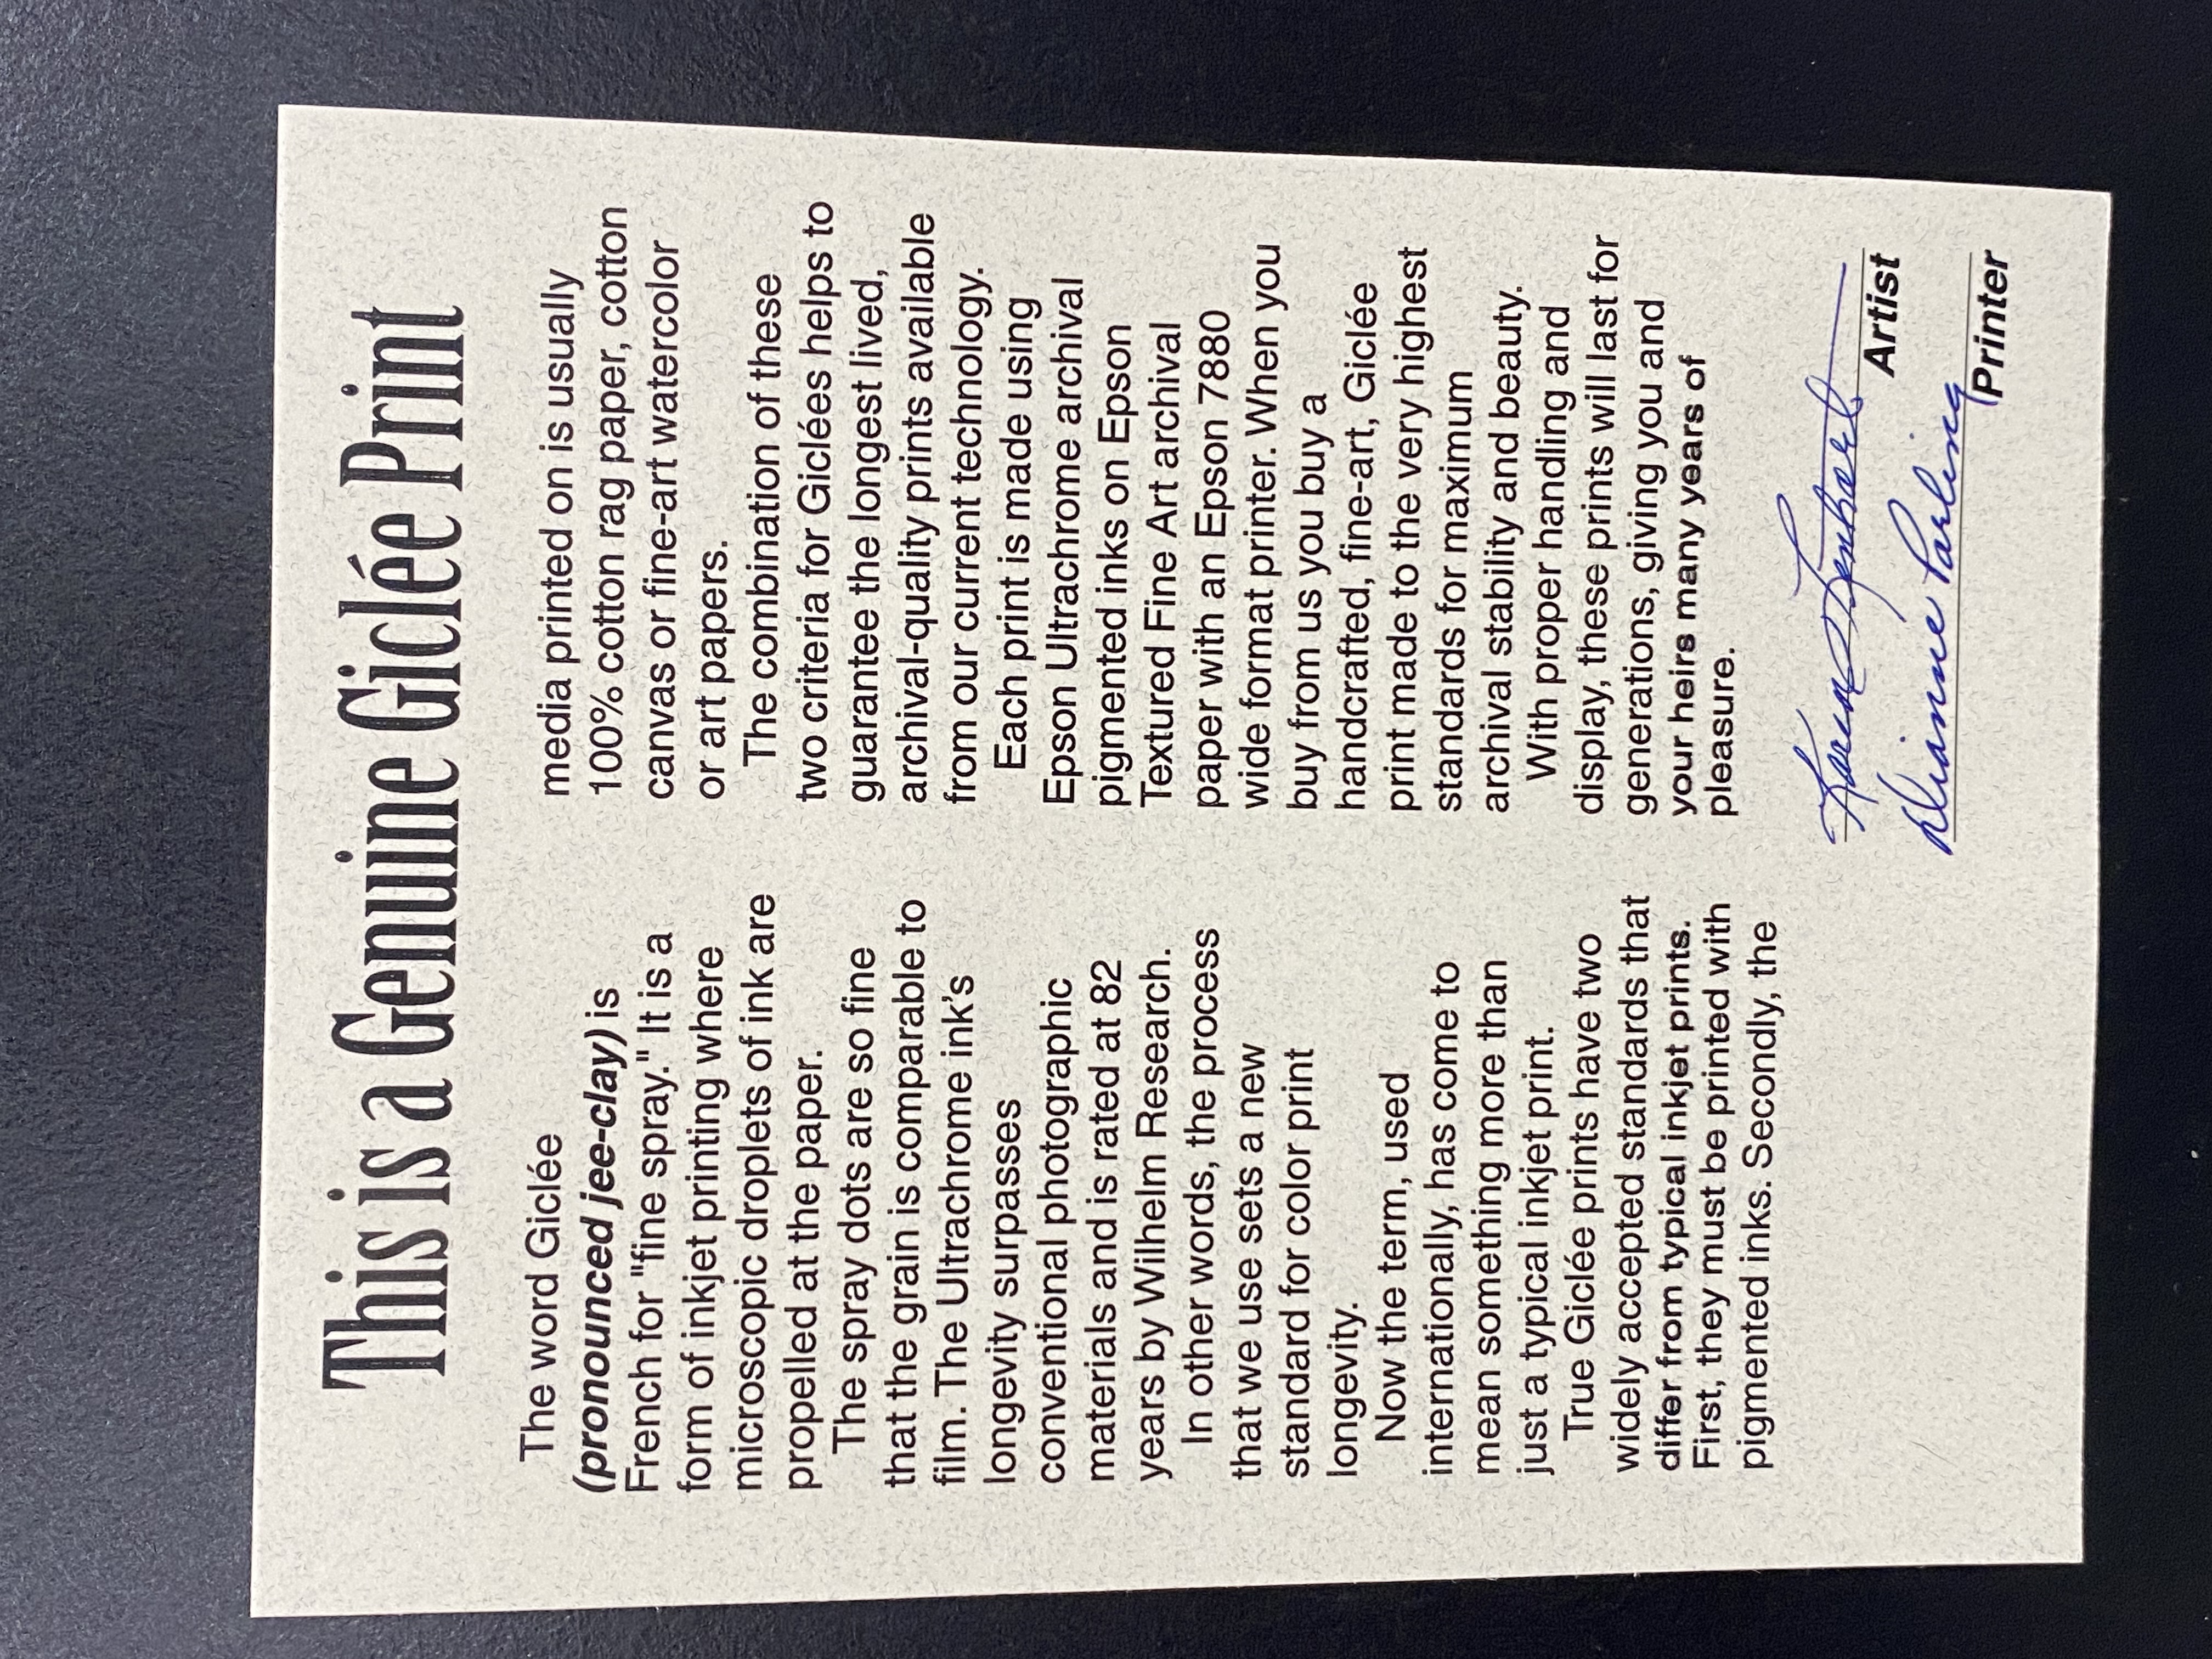 This is a Genuine Giclée Print
The word Giclée
(pronounced jee-clay) is
French for "fine spray." It is a
form of inkjet printing where
microscopic droplets of ink are
propelled at the paper.
The spray dots are so fine
that the grain is comparable to
film. The Ultrachrome ink's
longevity surpasses
conventional photographic
materials and is rated at 82
years by Wilhelm Research.
In other words, the process
that we use sets a new
standard for color print
longevity.
Now the term, used
internationally, has come to
mean something more than
just a typical inkjet print.
True Giclée prints have two
widely accepted standards that
differ from typical inkjet prints.
First, they must be printed with
pigmented inks. Secondly, the
media printed on is usually
100% cotton rag paper, cotton
canvas or fine-art watercolor
or art papers.
The combination of these
two criteria for Giclées helps to
guarantee the longest lived,
archival-quality prints available
from our current technology.
Each print is made using
Epson Ultrachrome archival
pigmented inks on Epson
Textured Fine Art archival
paper with an Epson 7880
wide format printer. When you
buy from us you buy a
handcrafted, fine-art, Giclée
print made to the very highest
standards for maximum
archival stability and beauty.
With proper handling and
display, these prints will last for
generations, giving you and
your heirs many years of
pleasure.
Artist
Dianne
Printer